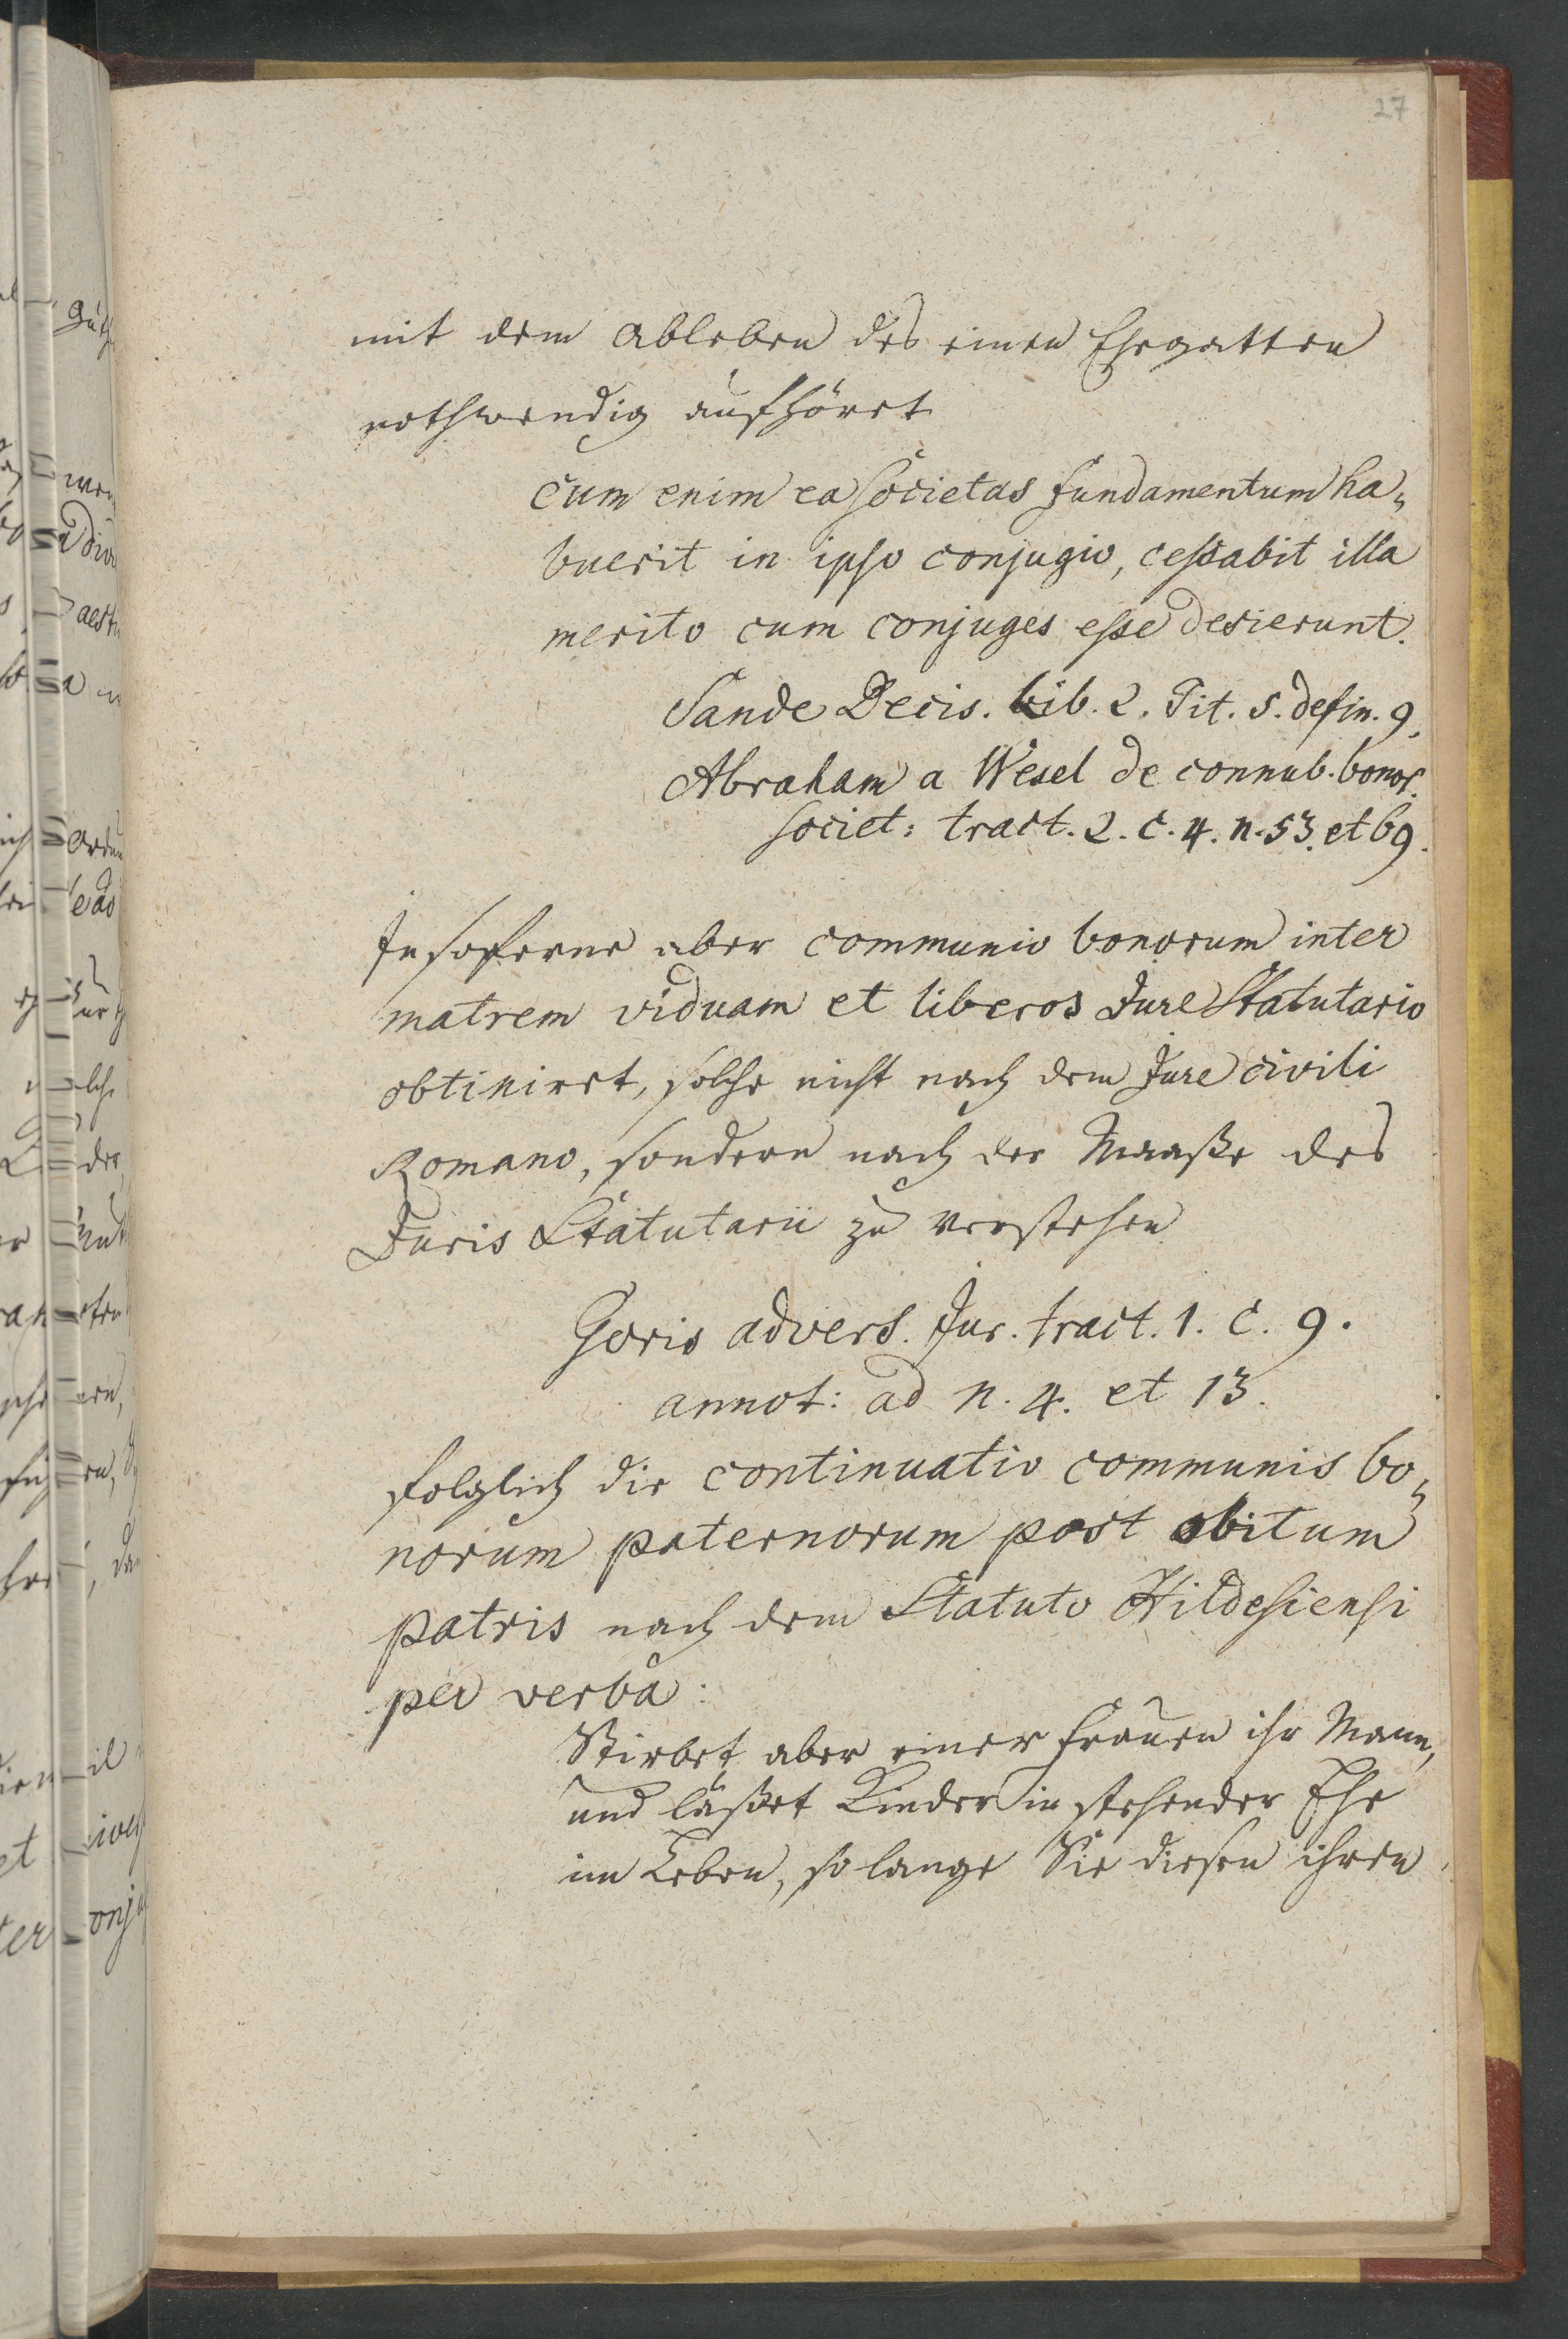 27
mit dem Ableben des einen Ehegatten
nothwendig aufhöret
cum enim ea societas fundamentum ha„
buerit in ipso conjugio, cessabit illa
merito cum conjuges esse desierunt.
Sande Decis. Lib. 2. Tit. 5. defin. 9.
Abraham a Wesel de connub. bonor.
societ: tract. 2. c. 4. n. 53. et 69.
Insoferne aber communio bonorum inter
matrem viduam et liberos Jure Statutario
obtiniret, solche nicht nach dem Jure civili
Romano, sondern nach der Maaße des
Juris Statutarii zu verstehen
Goris advers. Jur. tract. 1. c. 9.
annot: ad n. 4. et 13.
folglich die continuatio communis bo„
norum paternorum post obitum
patris nach dem Statuto Hildesiensi
per verba:
Stirbet aber einer Frauen ihr Mann,
und läßet Kinder in stehender Ehe
im Leben, so lange Sie diesen ihren